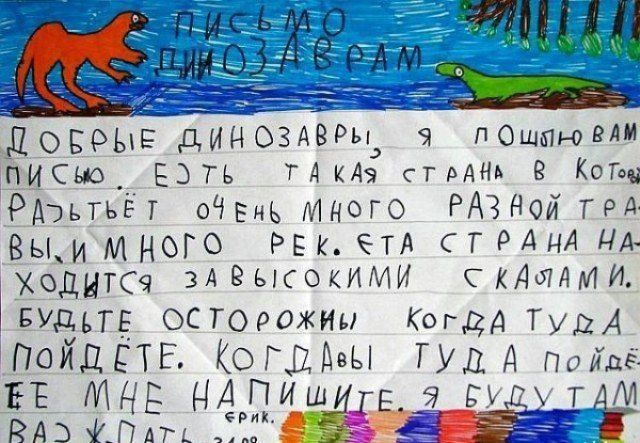 ПИСЬМО
ДИНОЗАВРАМ
ДОБРЫЕ ДИНОЗАВРЫ, Я ПОШЛЮ ВАМ
ПИСЬМО. ЕЗТЬ ТАКАЯ СТРАНА В КОТОРЯ
РАЗЬТЬЁТ ОЧЕНЬ МНОГО РАЗНОЙ ТРА-
ВЫ, И МНОГО РЕК. ЕТА СТРАНА НА-
ХОДИТСЯ ЗА ВЫСОКИМИ СКАЛАМИ.
БУДЬТЕ ОСТОРОЖНЫ КОГДА ТУДА
ПОЙДЁТЕ. КОГДА ВЫ ТУДА ПОЙДЁ
ЕЕ МНЕ НАПИШИТЕ. Я БУДУ ТАМ
ВАЗ ЖДАТЬ ЕРИК.